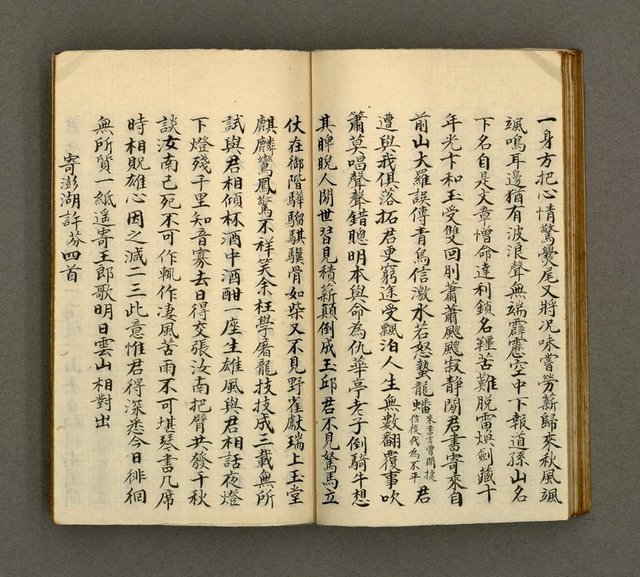 一身方把心情驚爨尾又將况味嘗勞薪歸來秋風颯
颯鳴耳邊猶有波浪聲無端霹靂空中下報道孫山名
下名自是文章憎命達利鎖名韁苦難脫雷煥劍藏十
年光卞和玉受雙回刖蕭蕭颸颸寂靜聞君書寄來自
前山大羅誤傳青鳥信激水若怒蟄龍蟠來書言曾聞捷信後代為不平君
遭與我俱落拓君更窮途受飄泊人生無數翻覆事吹
簫莫唱聲聲錯聰明本與命為仇華亭老子倒騎牛想
其睥睨人間世習見積薪顛倒成玉邱君不見駑馬立
仗在御階驊騮騏驥骨如柴又不見野雀獻瑞上玉堂
麒麟鸞鳳驚不祥笑余枉學屠龍技技成三載無所
試與君相傾杯酒中酒酣一座生雄風與君相話夜燈
下燈殘千里知音寡去日得交張汝南把臂共發千秋
談汝南己死不可作輒作淒風苦雨不可堪琴書几席
時相睨雄心因之減二三此意惟君得深悉今日徘徊
無所質一紙遥寄王郎歌明日雲山相對出
寄澎湖許芬四首